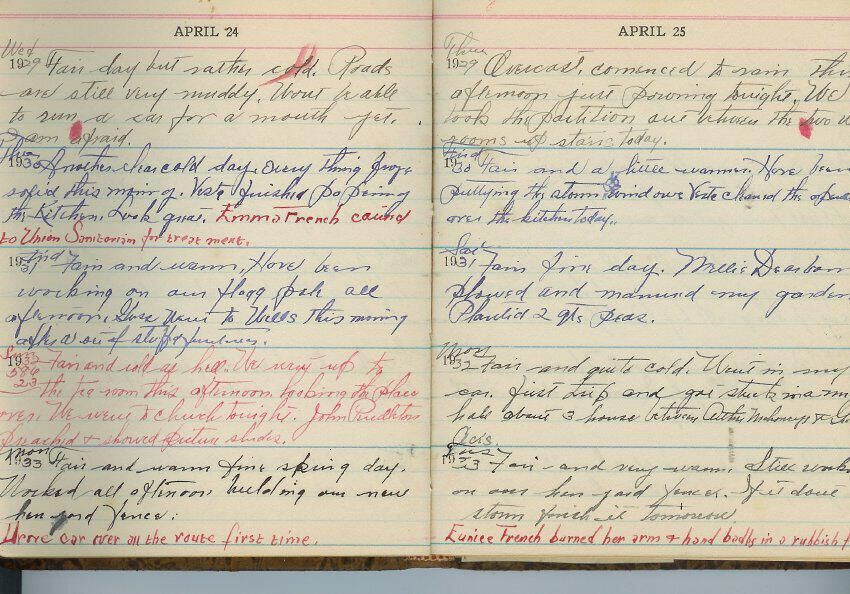 APRIL 24
Wed
1929 Fair day but rather cold. Roads
are still very muddy. Wont be able
to run a car for a month yet.
I am afraid.
Thur
1930 Another clear cold day. Every thing froze
solid this morning. Veste finished papering
the Kitchen. Looks great. Emma French carried
to Union Sanitorium for treatment.
Frid
1931 Fair and warm. Have been
working on our flagg pole all
afternoon. went to Wells this morning
after a of stuff
Sun
1932 Fair and cold as hell. We went up to
the tea room this afternoon looking the place
over. We went to church tonight. John Pendleton
preached & showed picture slides.
Mon
1933 Fair and warm fine spring day.
Worked all afternoon building our new
hen yard fence.
Drove car over all the route first time.
APRIL 25
Thur
1929 Overcast. comenced to rain this
afternoon just pouring tonight. We
took the partition out between the two
rooms up stairs today.
Frid
1930 Fair and a little warmer. Have been
puttying the storm windows Veste cleaned the
over the kitchen today.
Sat
1931 Fair fine day. Millie Dearborn
plowed and manured my garden
Planted 2 qts peas.
Mon
1932 Fair and quite cold. Went in my
car. first trip and got stuck in a
hole about 3 house between Arthur &
Tues
1933 Fair and very warm. Still
on our hen yard fence. If it dont
storm finish it tomorrow
Eunice French burned her arm & hand badly in a rubbish